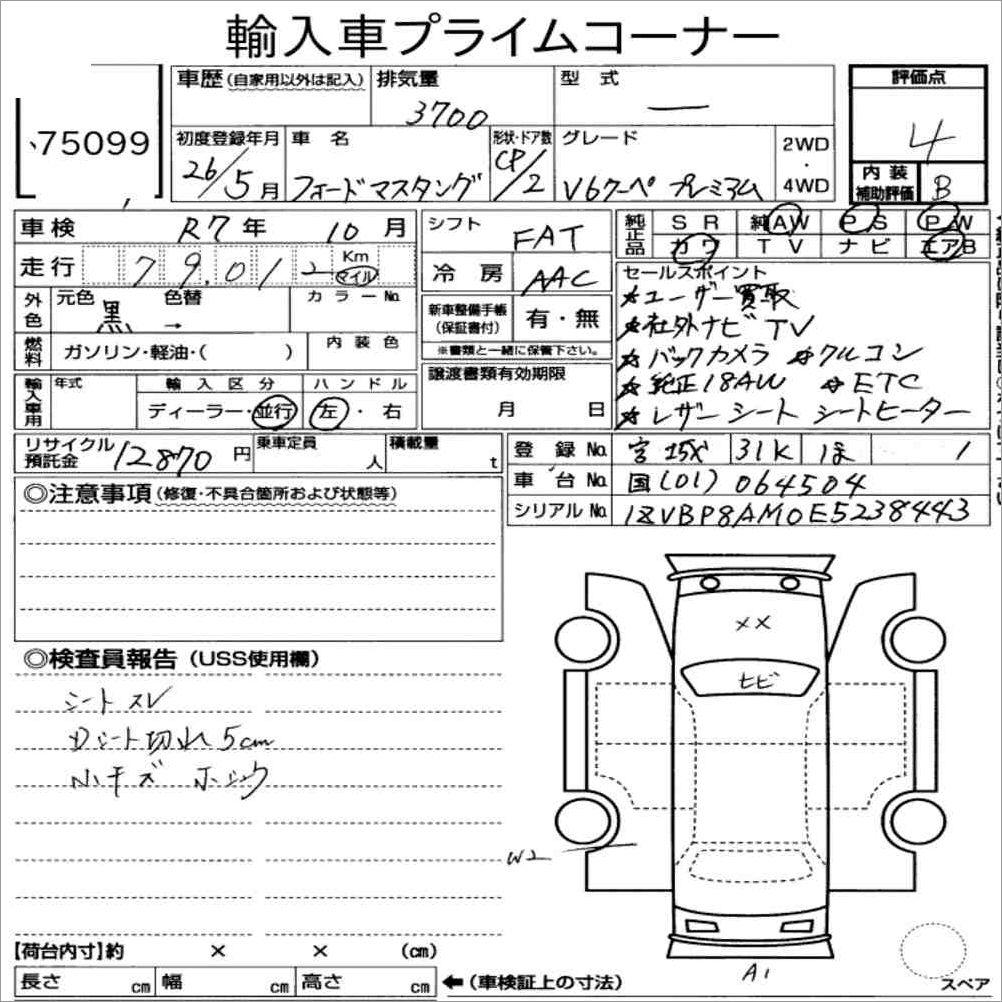 輸入車プライムコーナー
75099
車歴(自家用以外は記入) 排気量 型式 評価点
3700 ー 4
初度登録年月 車名 形状・ドア数 グレード 2WD・4WD 内装補助評価 B
26/5月 フォードマスタング CP/2 V6クーペ プレミアム
車検 R7年 10月 シフト FAT 純正品 SR 純AW PS PW
走行 79,012 Km マイル 冷房 AAC カワ TV ナビ エアB
外色 元色 黒 → 色替 カラーNo. 新車整備手帳(保証書付) 有・無
※書類と一緒に保管下さい。
燃料 ガソリン・軽油・( ) 内装色
輸入車用 年式 輸入区分 ハンドル
ディーラー・並行 左・右
譲渡書類有効期限
月 日
セールスポイント
☆ユーザー買取
☆社外ナビTV
☆バックカメラ ☆クルコン
☆純正18AW ☆ETC
☆レザーシート シートヒーター
リサイクル預託金 12870円 乗車定員 人 積載量 t
登録No. 宮城 31K ほ 1
車台No. 国(01)064504
シリアルNo. 1ZVBP8AM0E5238443
◎注意事項(修復・不具合箇所および状態等)
◎検査員報告(USS使用欄)
シートスレ
Dシート切れ5cm
小キズ
XX
ヒビ
W2
A1
【荷台内寸】約 × × (cm)
長さ cm 幅 cm 高さ cm ←(車検証上の寸法)
スペア